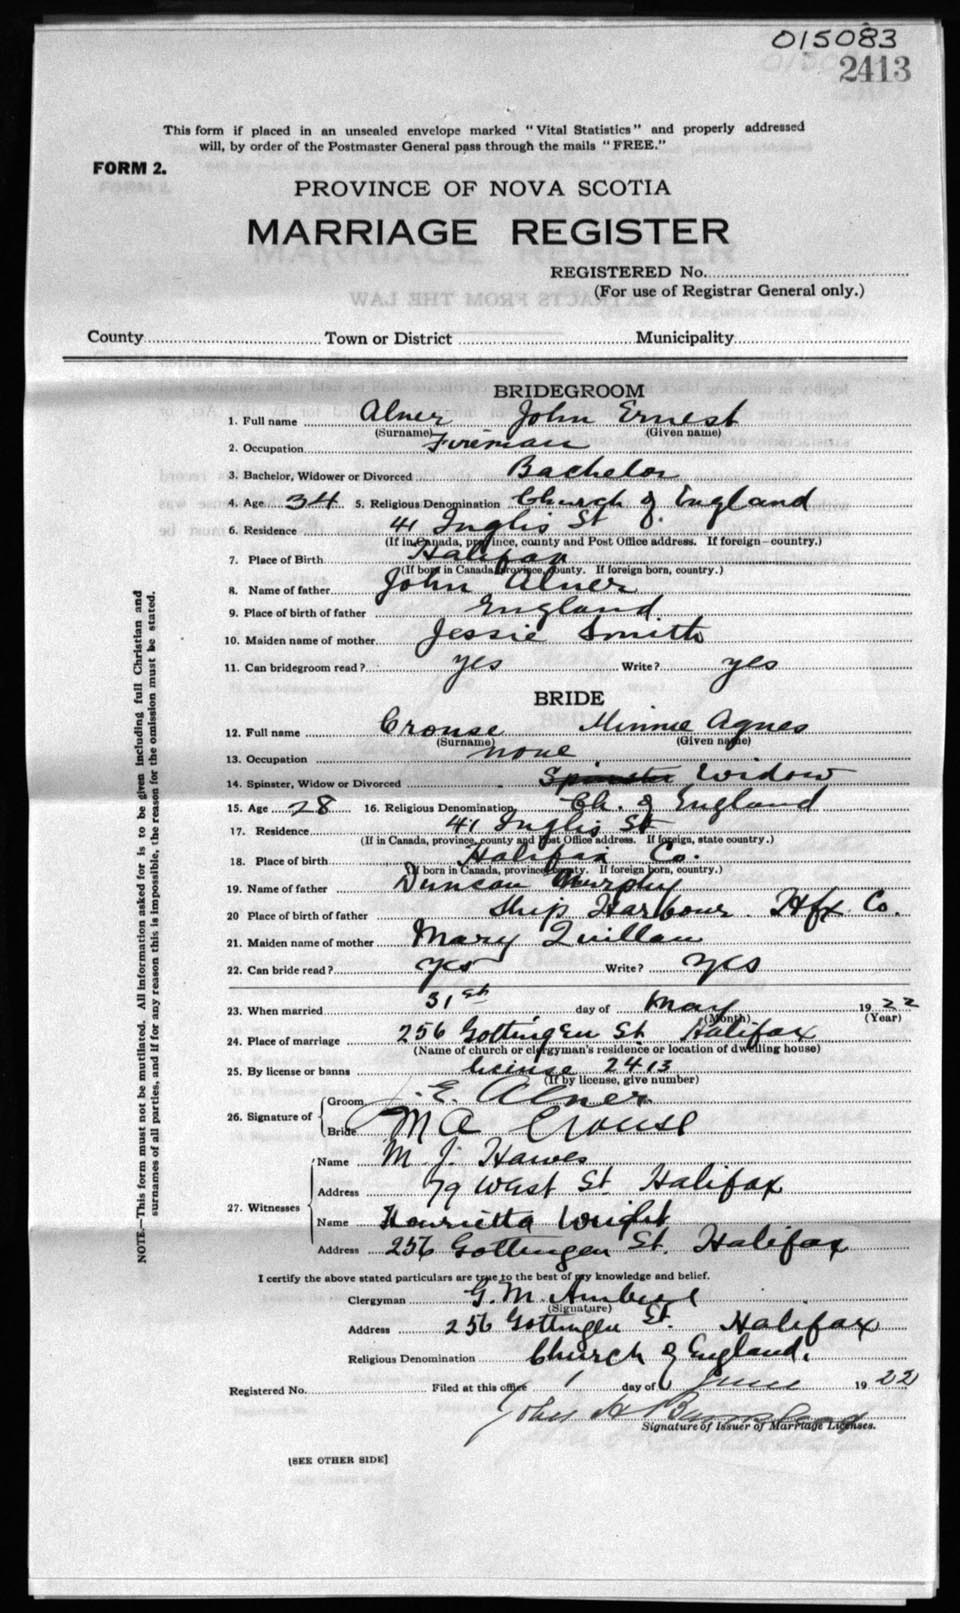 015083
2413
This form if placed in an unsealed envelope marked "Vital Statistics" and properly addressed
will, by order of the Postmaster General pass through the mails "FREE."
FORM 2.
PROVINCE OF NOVA SCOTIA
MARRIAGE REGISTER
REGISTERED No.
(For use of Registrar General only.)
County Town or District Municipality
BRIDEGROOM
1. Full name Alner John Ernest
(Surname) (Given name)
2. Occupation Fireman
3. Bachelor, Widower or Divorced Bachelor
4. Age 34 5. Religious Denomination Church of England
6. Residence 41 Inglis St
(If in Canada, province, county and Post Office address. If foreign—country.)
7. Place of Birth Halifax
(If born in Canada, province, county. If foreign born, country.)
8. Name of father John Alner
9. Place of birth of father England
10. Maiden name of mother Jessie Smith
11. Can bridegroom read? yes Write? yes
BRIDE
12. Full name Crouse Minnie Agnes
(Surname) (Given name)
13. Occupation none
14. Spinster, Widow or Divorced Spinster Widow
15. Age 28 16. Religious Denomination Ch. of England
17. Residence 41 Inglis St
(If in Canada, province, county and Post Office address. If foreign, state country.)
18. Place of birth Halifax Co.
(If born in Canada, province, county. If foreign born, country.)
19. Name of father Duncan Murphy
20 Place of birth of father Ship Harbour Hfx Co.
21. Maiden name of mother Mary Quillan
22. Can bride read? yes Write? yes
23. When married 31st day of May 1922
(Month) (Year)
24. Place of marriage 256 Gottingen St Halifax
(Name of church or clergyman's residence or location of dwelling house)
25. By license or banns license 2413
(If by license, give number)
26. Signature of Groom J. E. Alner
Bride M A Crouse
27. Witnesses
Name M J. Hawes
Address 79 West St. Halifax
Name Henrietta Wright
Address 256 Gottingen St. Halifax
I certify the above stated particulars are true to the best of my knowledge and belief.
Clergyman G. M. Ambrose
(Signature)
Address 256 Gottingen St. Halifax
Religious Denomination Church of England.
Registered No. Filed at this office 1 day of June 1922
John H
Signature of Issuer of Marriage Licenses.
[SEE OTHER SIDE]
NOTE.—This form must not be mutilated. All information asked for is to be given including full Christian and
surnames of all parties, and if for any reason this is impossible, the reason for the omission must be stated.